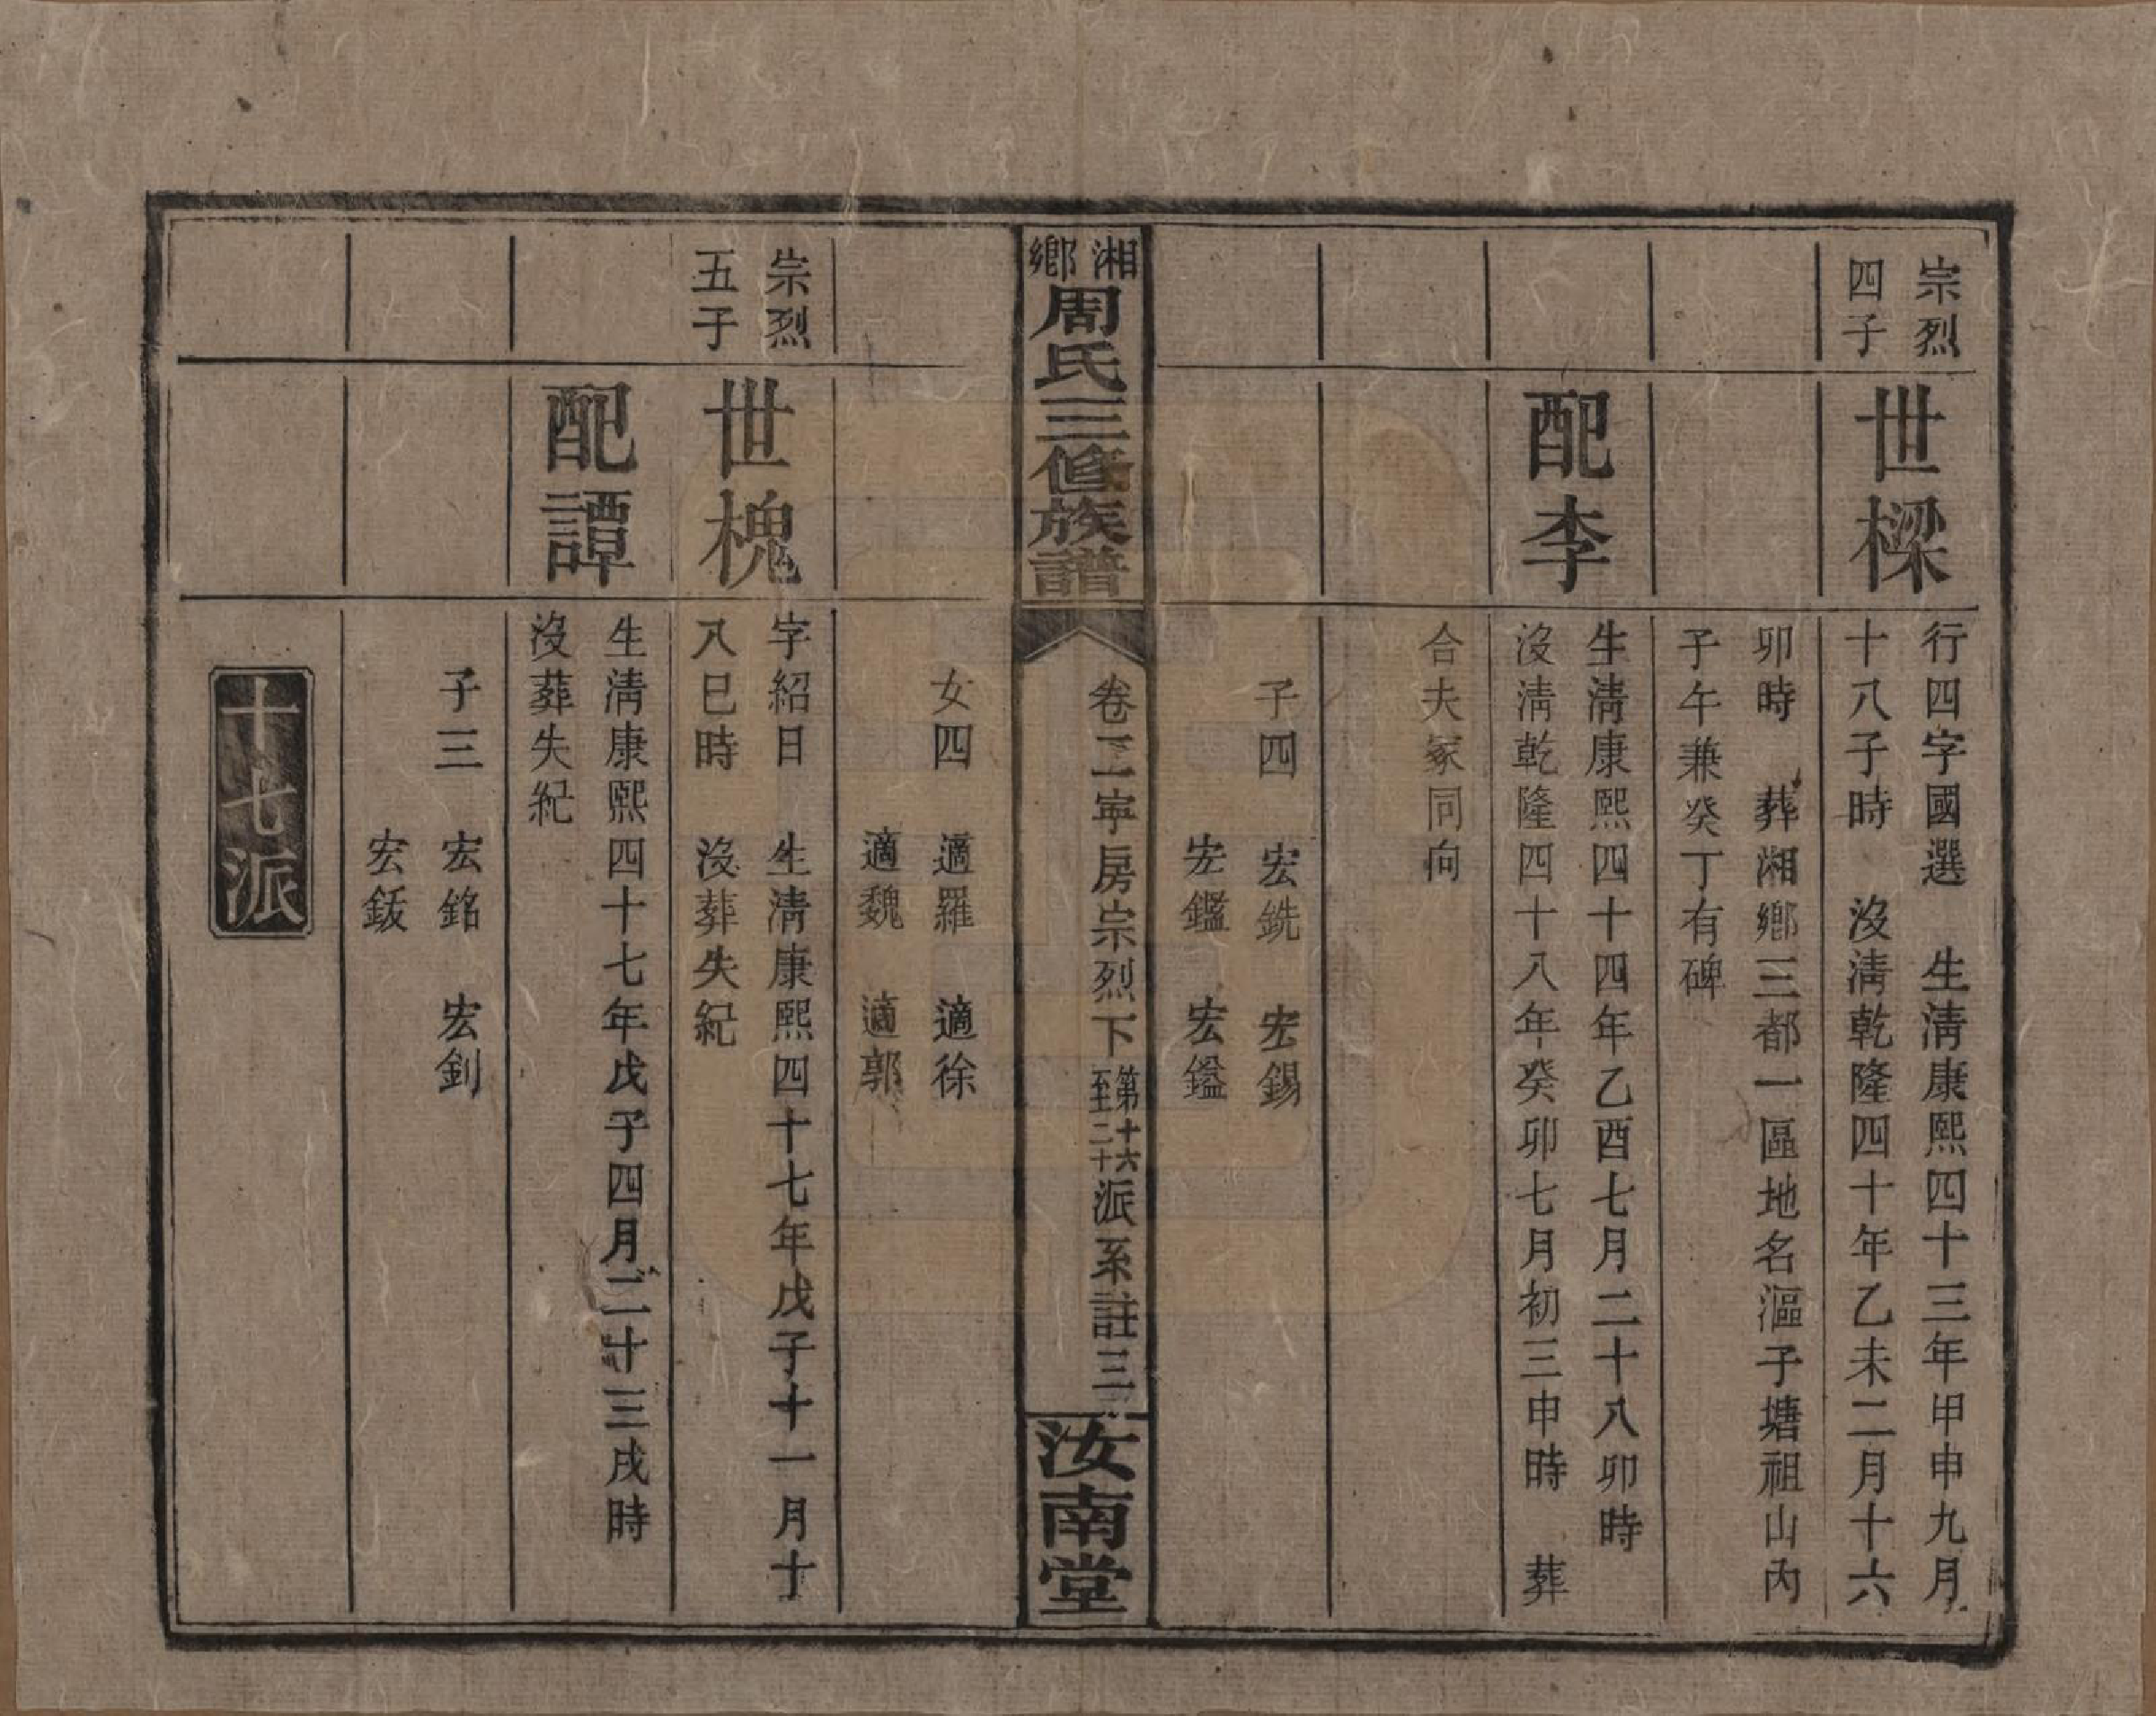 宗烈
四子
世樑
行四字國選　生淸康熙四十三年甲申九月
十八子時　沒淸乾隆四十年乙未二月十六
卯時　葬湘鄕三都一區地名漚子塘祖山內
子午兼癸丁有碑
配李
生淸康熙四十四年乙酉七月二十八卯時
沒淸乾隆四十八年癸卯七月初三申時　葬
合夫冢同向
子四　宏銑　宏錫
宏鑑　宏鎰
湘鄕周氏三修族譜
卷二寧房宗烈下第十六至二十派系註三
汝南堂
女四　適羅　適徐
適魏　適郭
宗烈
五子
世槐
字紹日　生淸康熙四十七年戊子十一月十
八巳時　沒葬失紀
配譚
生淸康熙四十七年戊子四月二十三戌時
沒葬失紀
子三　宏銘　宏釗
宏鈸
十七派